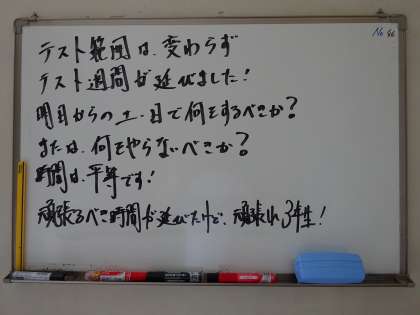 No 86
テスト範囲は、変わらず
テスト週間が延びました!
明日からの土・日で何をするべきか?
または、何をやらないべきか?
時間は、平等です!
頑張るべき時間が延びたけど、頑張れ3年生!